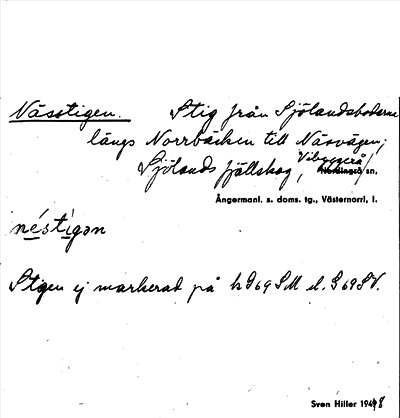 Nässtigen. Stig från Sjölandsbodarne
längs Norrbäcken till Näsvägen;
Sjölands fjällskog, Vibyggerå sn.
Ångermanl. s. doms. tg., Västernorrl. l.
néstìgən
Stigen ej markerad på h 69 SM el. G 69 SV.
Sven Hiller 1948